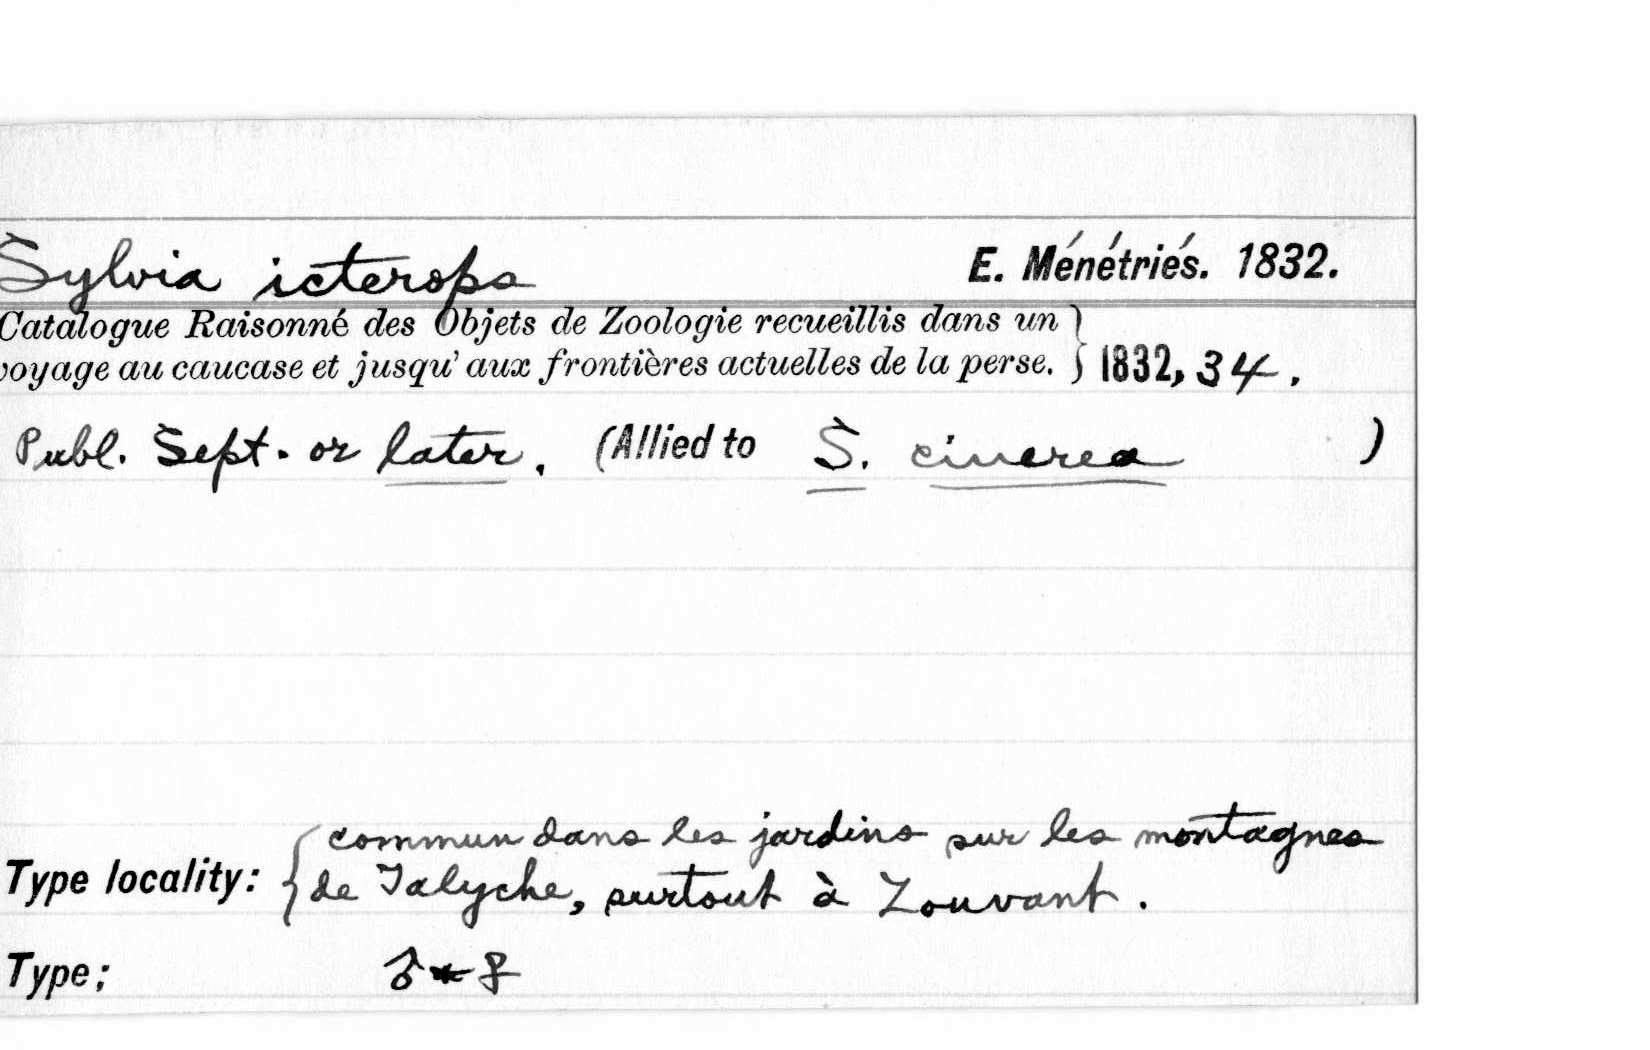 Sylvia icterops E. Ménétriés. 1832.
Catalogue Raisonné des Objets de Zoologie recueillis dans un
voyage au caucase et jusqu' aux frontières actuelles de la perse. } 1832, 34.
Publ. Sept. or later. (Allied to S. cinerea )
Type locality: { commun dans les jardins sur les montagnes
de Talyche, surtout à Zouvant.
Type; ♂ + ♀